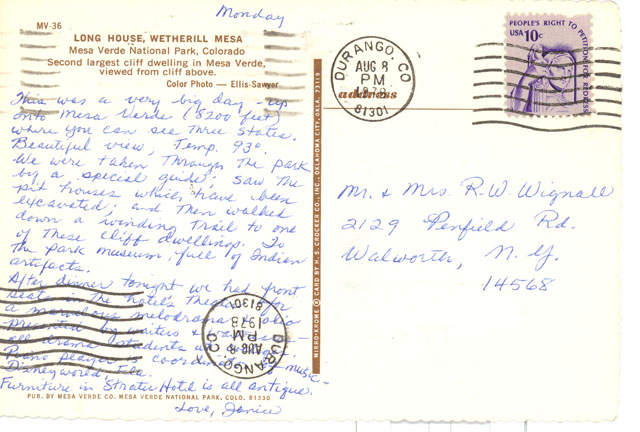 Monday
MV-36
LONG HOUSE, WETHERILL MESA
Mesa Verde National Park, Colorado
Second largest cliff dwelling in Mesa Verde,
viewed from cliff above.
Color Photo — Ellis-Sawyer
This was a very big day - up
onto Mesa Verde (8200 feet)
where you can see three States.
Beautiful view, Temp. 93°.
We were taken through the park
by a special guide; saw the
pit houses which have been
excavated; and then walked
down a winding trail to one
of these cliff dwellings. To
the park museum, full of Indian
artifacts.
After dinner tonight we had front
seats in the hotel's theater for
a marvelous melodrama & olio
presented by waiters &
all drama students
Piano player is coordinator music-
Disneyworld, Fla.
Furniture in Strater Hotel is all antique.
Love, Janice
PUB. BY MESA VERDE CO. MESA VERDE NATIONAL PARK, COLO. 81330
MICRO-KROME ® CARD BY H. S. CROCKER CO., INC., OKLAHOMA CITY, OKLA. 73119
DURANGO, CO
AUG 8
PM
1978
81301
PEOPLE'S RIGHT TO PETITION FOR REDRESS
USA 10c
address
Mr. & Mrs. R. W. Wignall
2129 Penfield Rd.
Walworth, N.Y.
14568
DURANGO, CO
AUG 8
PM
1978
81301